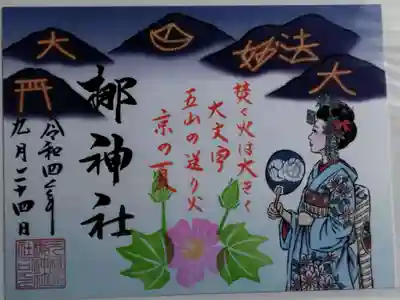 大
妙法
大
焚く火は大きく
大文字
五山の送り火
京の夏
梛神社
令和四年
九月二十四日